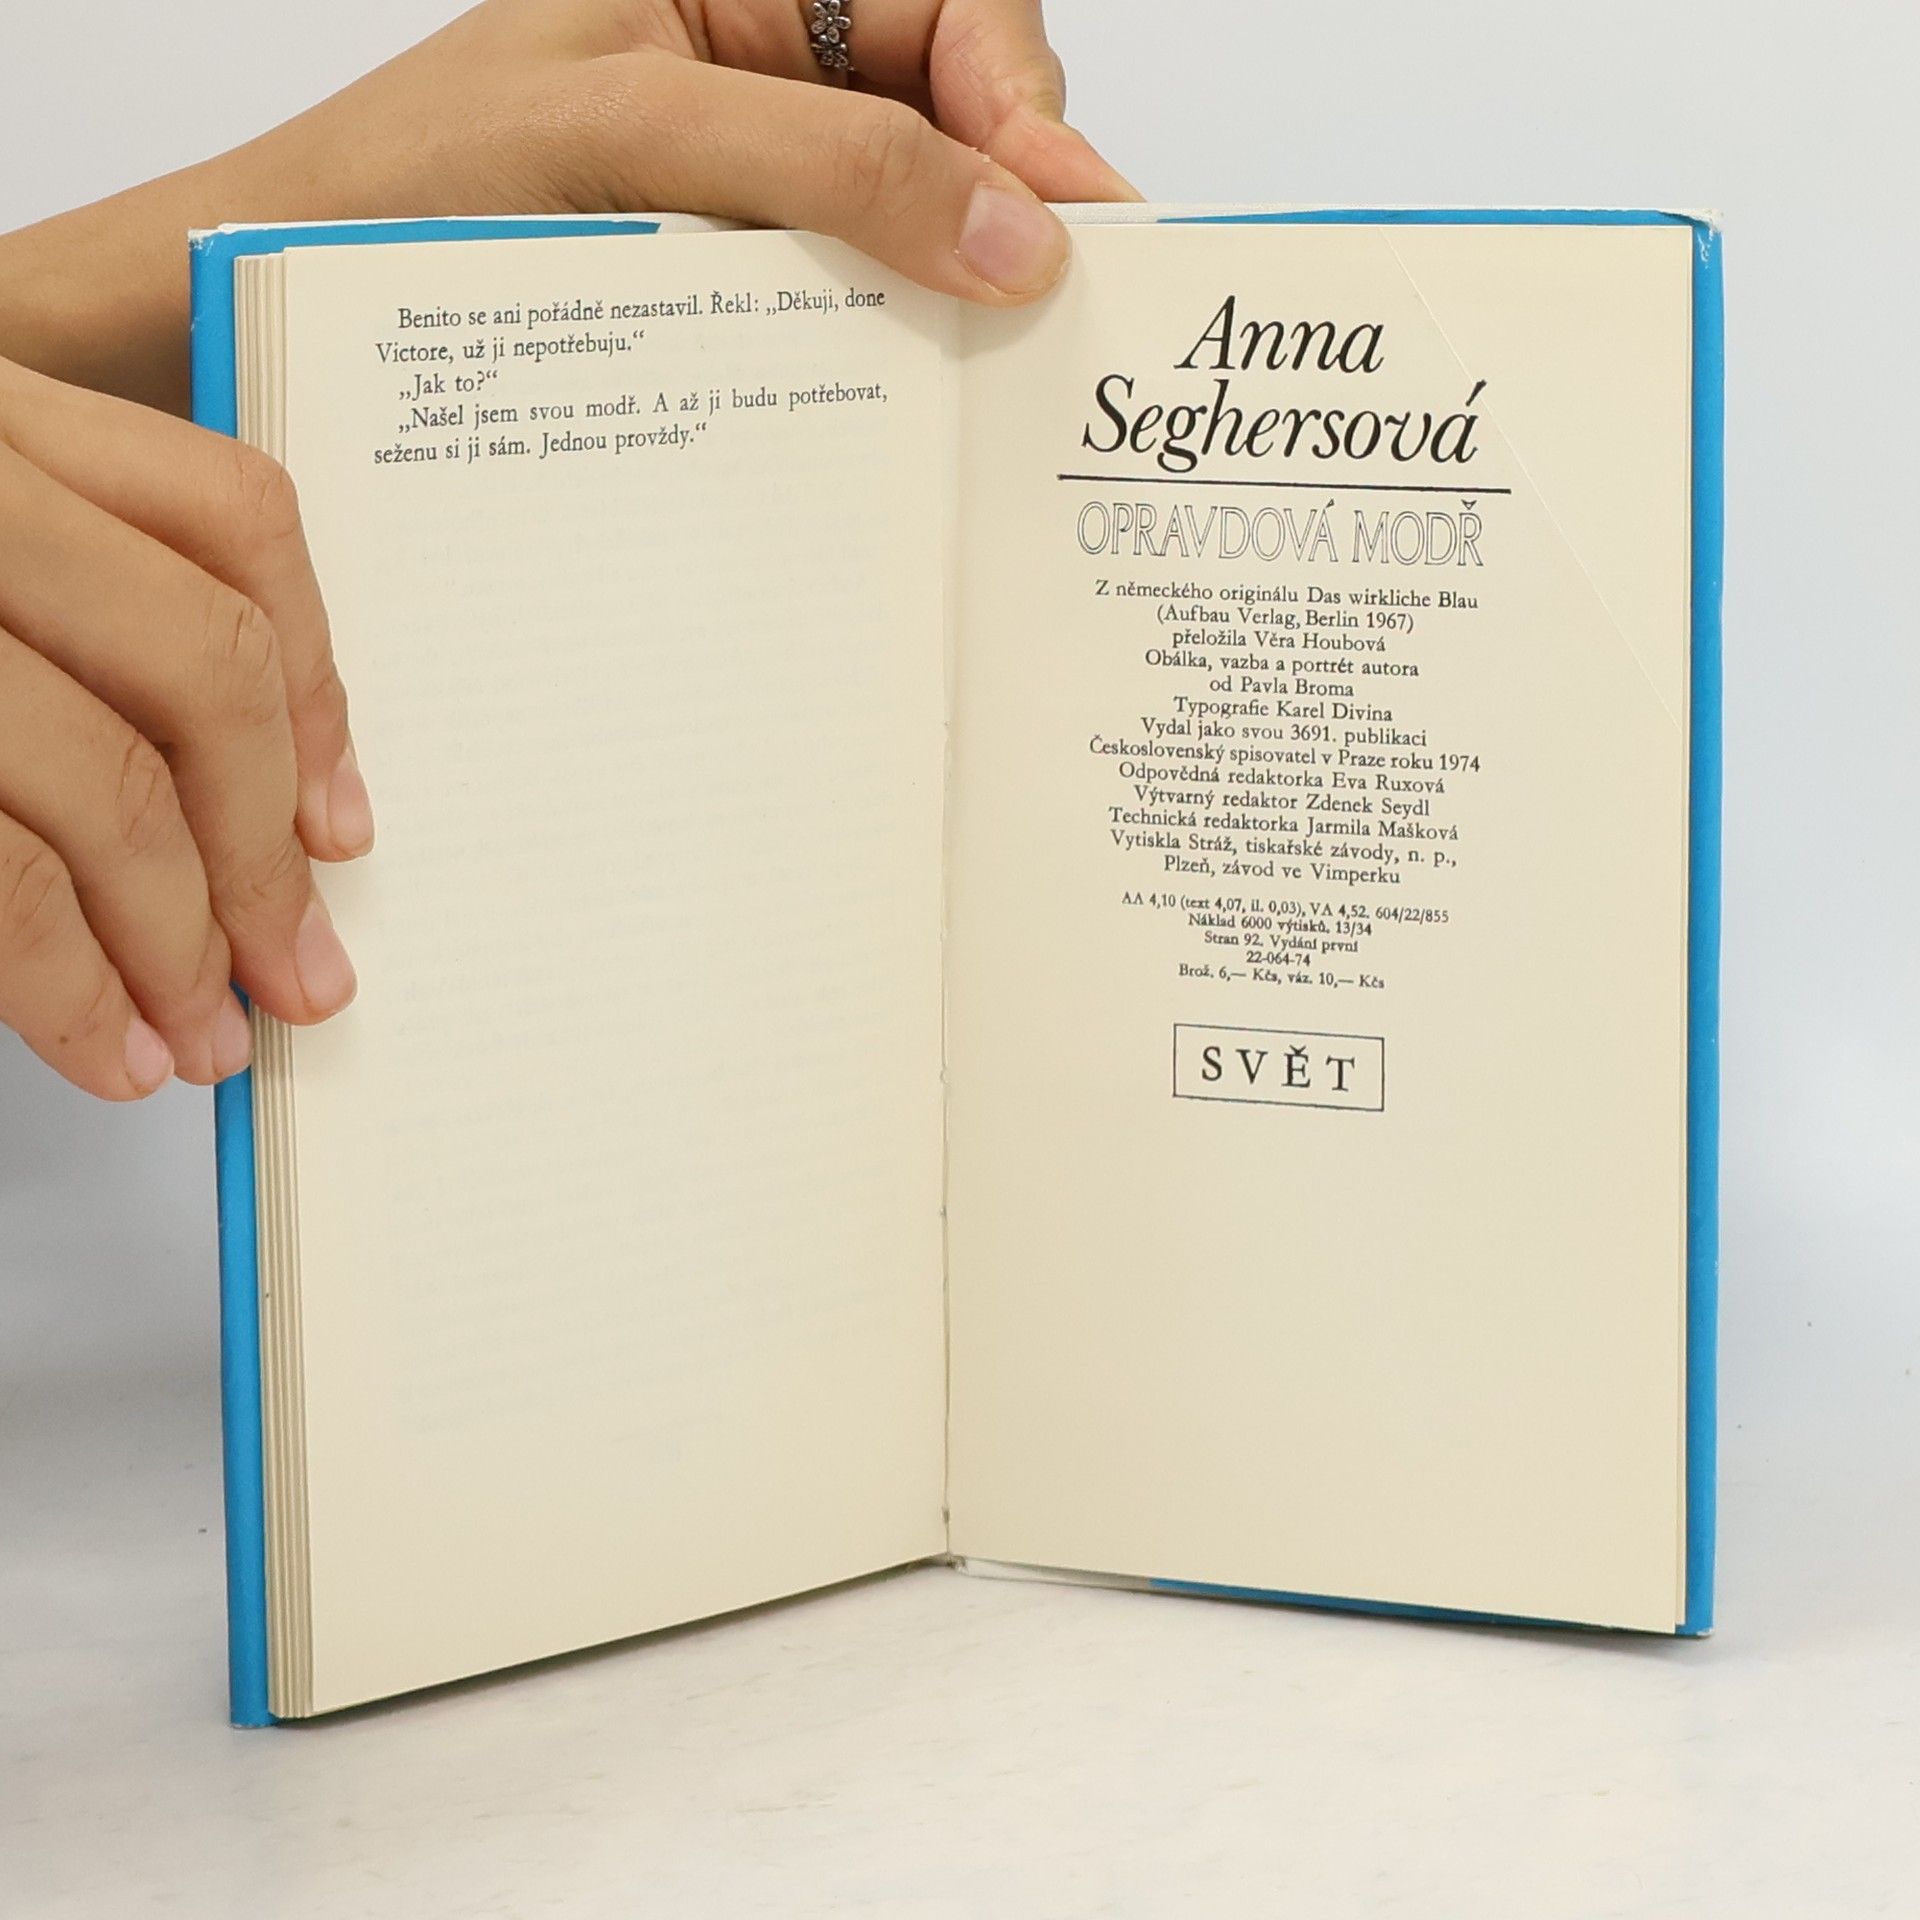 Benito se ani pořádně nezastavil. Řekl: „Děkuji, done
Victore, už ji nepotřebuju.“
„Jak to?“
„Našel jsem svou modř. A až ji budu potřebovat,
seženu si ji sám. Jednou provždy.“
Anna
Seghersová
OPRAVDOVÁ MODŘ
Z německého originálu Das wirkliche Blau
(Aufbau Verlag, Berlin 1967)
přeložila Věra Houbová
Obálka, vazba a portrét autora
od Pavla Broma
Typografie Karel Divina
Vydal jako svou 3691. publikaci
Československý spisovatel v Praze roku 1974
Odpovědná redaktorka Eva Ruxová
Výtvarný redaktor Zdenek Seydl
Technická redaktorka Jarmila Mašková
Vytiskla Stráž, tiskařské závody, n. p.,
Plzeň, závod ve Vimperku
AA 4,10 (text 4,07, il. 0,03), VA 4,52. 604/22/855
Náklad 6000 výtisků. 13/34
Stran 92. Vydání první
22-064-74
Brož. 6,— Kčs, váz. 10,— Kčs
SVĚT